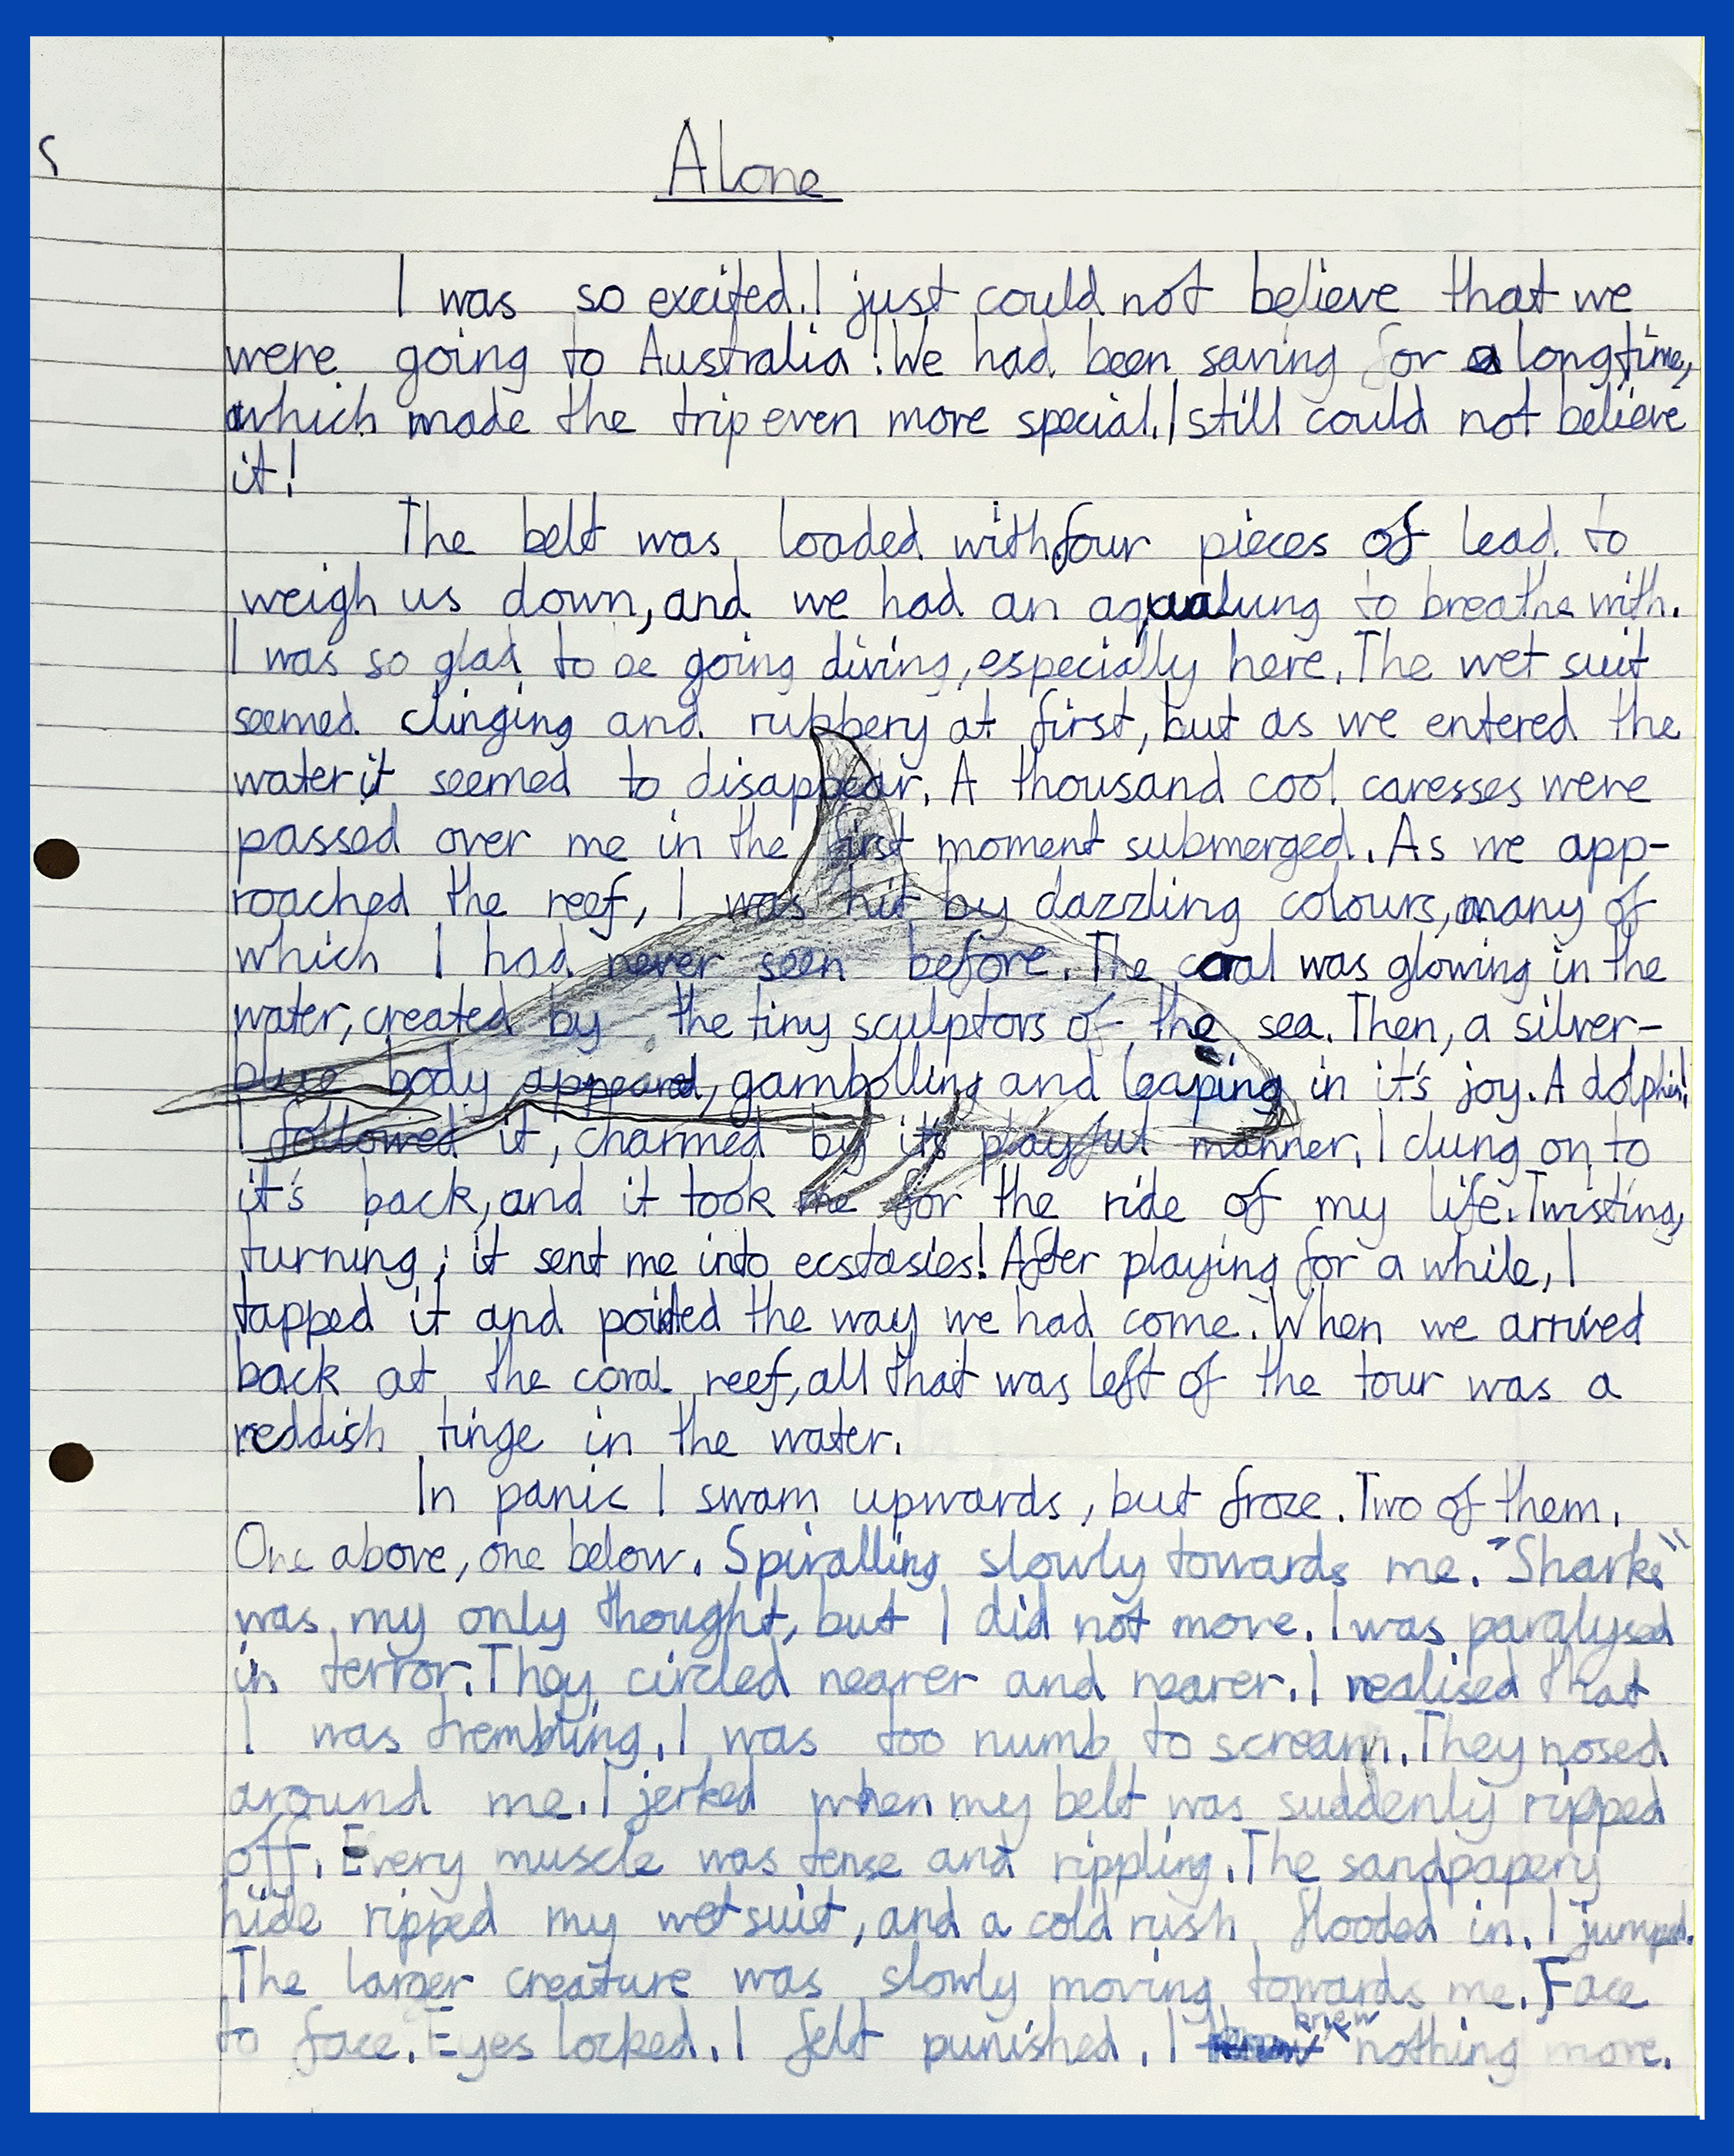 s
Alone
I was so excited. I just could not believe that we
were going to Australia! We had been saving for a long time,
which made the trip even more special. I still could not believe
it!
The belt was loaded with four pieces of lead to
weigh us down, and we had an aqualung to breathe with.
I was so glad to be going diving, especially here. The wet suit
seemed clinging and rubbery at first, but as we entered the
water it seemed to disappear. A thousand cool caresses were
passed over me in the first moment submerged. As we app-
roached the reef, I was hit by dazzling colours, many of
which I had never seen before. The coral was glowing in the
water, created by the tiny sculptors of the sea. Then, a silver-
blue body appeared, gambolling and leaping in it's joy. A dolphin!
I followed it, charmed by its playful manner. I clung on to
it's back, and it took me for the ride of my life. Twisting,
turning; it sent me into ecstasies! After playing for a while, I
tapped it and pointed the way we had come. When we arrived
back at the coral reef, all that was left of the tour was a
reddish tinge in the water.
In panic I swam upwards, but froze. Two of them.
One above, one below. Spiralling slowly towards me. "Sharks"
was my only thought, but I did not move. I was paralysed
in terror. They circled nearer and nearer. I realised that
I was trembling. I was too numb to scream. They nosed
around me. I jerked when my belt was suddenly ripped
off. Every muscle was tense and rippling. The sandpapery
hide ripped my wetsuit, and a cold rush flooded in. I jumped.
The larger creature was slowly moving towards me. Face
to face. Eyes locked. I felt punished. I knew nothing more.